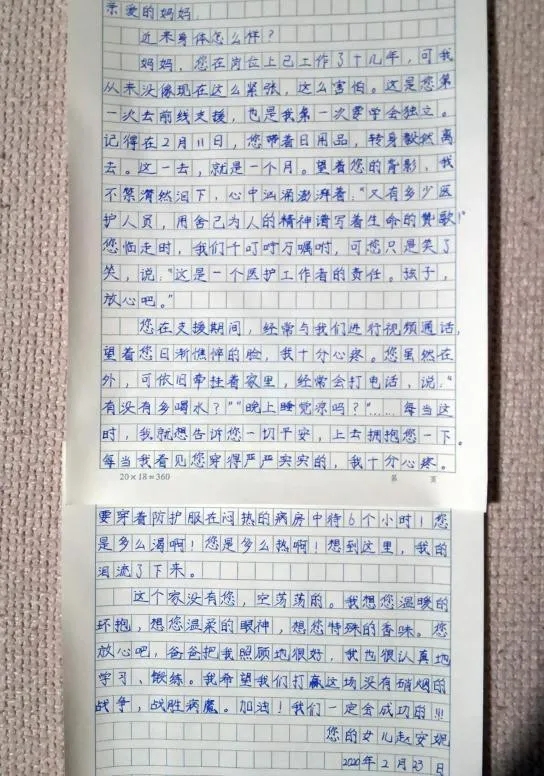 亲爱的妈妈:
近来身体怎么样?
妈妈,您在岗位上已工作了十几年,可我
从来没像现在这么紧张,这么害怕。这是您第
一次去前线支援,也是我第一次要学会独立。
记得在2月11日,您带着日用品,转身毅然离
去。这一去,就是一个月。望着您的背影,我
不禁潸然泪下,心中汹涌澎湃着:“又有多少医
护人员,用舍己为人的精神谱写着生命的赞歌!”
您临走时,我们千叮咛万嘱咐,可您只是笑了
笑,说:“这是一个医护工作者的责任。孩子,
放心吧。”
您在支援期间,经常与我们进行视频通话,
望着您日渐憔悴的脸,我十分心疼。您虽然在
外,可依旧牵挂着家里,经常会打电话,说:“
有没有多喝水?”“晚上睡觉凉吗?”……每当这
时,我就想告诉您一切平安,上去拥抱您一下。
每当我看见您穿得严严实实的,我十分心疼。
20×18=360 第 页
要穿着防护服在闷热的病房中待6个小时!您
是多么渴啊!您是多么热啊!想到这里,我的
泪流了下来。
这个家没有您,空荡荡的。我想您温暖的
环抱,想您温柔的眼神,想您特殊的香味。您
放心吧,爸爸把我照顾地很好,我也很认真地
学习、锻练。我希望我们打赢这场没有硝烟的
战争,战胜病魔。加油!我们一定会成功的!!!
您的女儿赵安妮
2020年2月23日